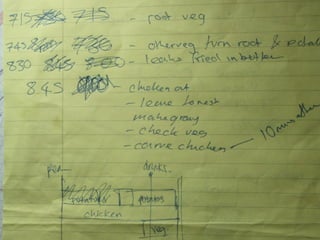 715 715 - root veg
745 - otherveg turn root &
830 - leeks fried in butter
845 chicken out
- leave to rest
make gravy
- check veg
- carve chicken
10 mins after
drinks
potatoes potatoes
chicken
veg